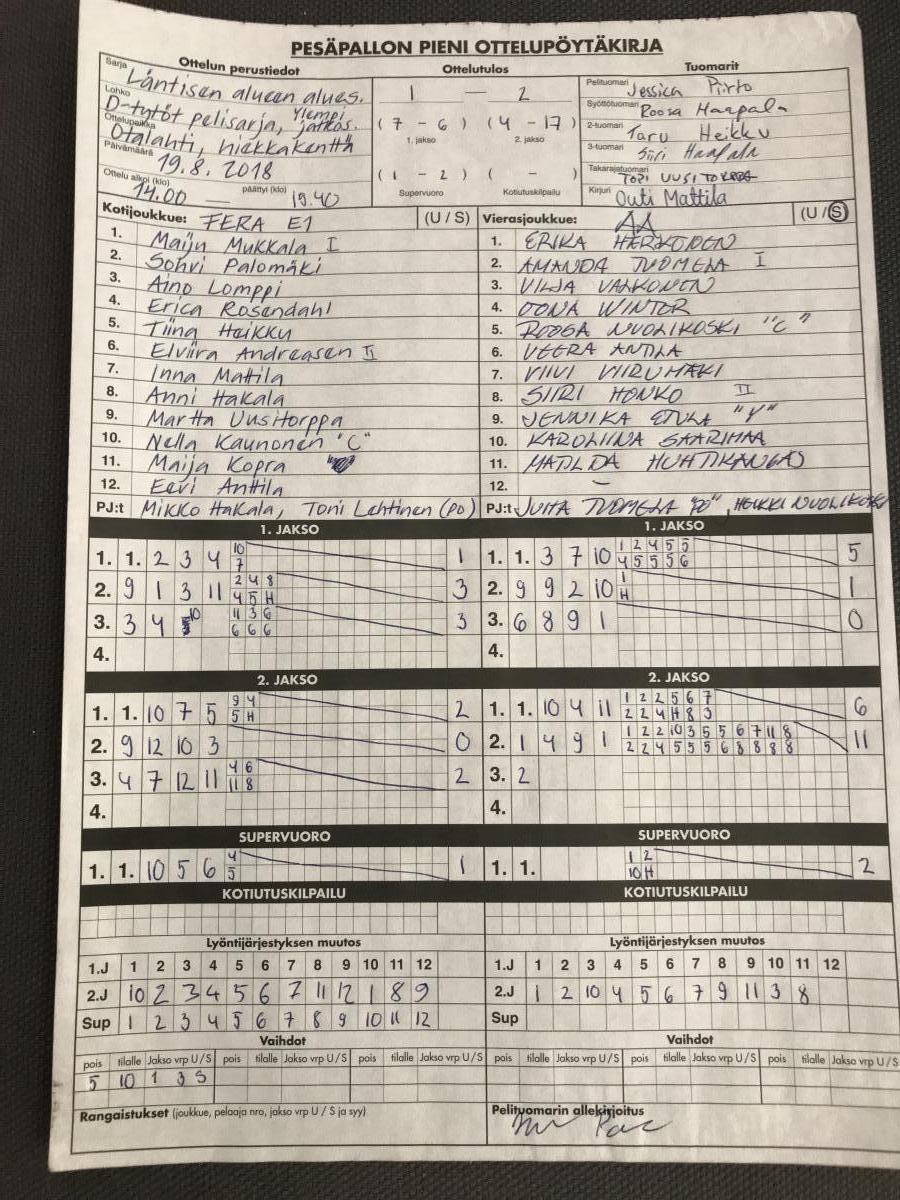 PESÄPALLON PIENI OTTELUPÖYTÄKIRJA
Ottelun perustiedot
Ottelutulos
Tuomarit
Sarja Läntisen alueen alues.
Lohko D-tytöt pelisarja, Ylempi jatkos.
Ottelupaikka Otalahti, hiekkakenttä
Päivämäärä 19.8.2018
Ottelu alkoi (klo) 14.00 — päättyi (klo) 15.40
1 — 2
(7 - 6) (4 - 17)
1. jakso 2. jakso
(1 - 2) ( - )
Supervuoro Kotiutuskilpailu
Pelituomari Jessica Pirto
Syöttötuomari Roosa Haapala
2-tuomari Taru Heikku
3-tuomari Siiri Haapala
Takarajatuomari TOPI
Kirjuri Outi Mattila
Kotijoukkue: FERA E1 (U / S)
1. Maiju Mukkala I
2. Sohvi Palomäki
3. Aino Lomppi
4. Erica Rosendahl
5. Tiina Heikku
6. Elviira Andreasen II
7. Inna Mattila
8. Anni Hakala
9. Martta Uusitorppa
10. Nella Kaunonen "C"
11. Maija Kopra
12. Eevi Anttila
PJ:t Mikko Hakala, Toni Lehtinen (PO)
Vierasjoukkue: AA (U / S)
1. ERIKA HERKONEN
2. AMANDA TUOMELA I
3. VILJA VALKONEN
4. OONA WINTER
5. ROOSA NUOLIKOSKI "C"
6. VEERA ANTILA
7. VIIVI VIIRUMÄKI
8. SIIRI HONKO II
9. JENNIKA ETULA "V"
10. KAROLIINA SAARIMAA
11. MATILDA HUHTIKANGAS
12. —
PJ:t JUHA TUOMELA "PO", HEIKKI NUOLIKOSKI
1. JAKSO
1. 1. 2 3 4 10 1
7
2. 9 1 3 11 2 4 8 3
4 5 H
3. 3 4 10 11 3 6 3
6 6 6
4.
1. JAKSO
1. 1. 3 7 10 1 2 4 5 5 5
4 5 5 5 6
2. 9 9 2 10 1 1
H
3. 6 8 9 1 0
4.
2. JAKSO
1. 1. 10 7 5 9 4 2
5 H
2. 9 12 10 3 0
3. 4 7 12 11 4 6 2
11 8
4.
2. JAKSO
1. 1. 10 4 11 1 2 2 5 6 7 6
2 2 4 H 8 3
2. 1 4 9 1 1 2 2 10 3 5 5 6 7 11 8 11
2 2 4 5 5 5 6 8 8 8 8
3. 2
4.
SUPERVUORO
1. 1. 10 5 6 4 1
5
SUPERVUORO
1. 1. 1 2 2
10 H
KOTIUTUSKILPAILU
KOTIUTUSKILPAILU
Lyöntijärjestyksen muutos
1.J 1 2 3 4 5 6 7 8 9 10 11 12
2.J 10 2 3 4 5 6 7 11 12 1 8 9
Sup 1 2 3 4 5 6 7 8 9 10 11 12
Lyöntijärjestyksen muutos
1.J 1 2 3 4 5 6 7 8 9 10 11 12
2.J 1 2 10 4 5 6 7 9 11 3 8
Sup
Vaihdot
pois tilalle Jakso vrp U / S pois tilalle Jakso vrp U / S pois tilalle Jakso vrp U / S
5 10 1 3 S
Vaihdot
pois tilalle Jakso vrp U / S pois tilalle Jakso vrp U / S pois tilalle Jakso vrp U / S
Rangaistukset (joukkue, pelaaja nro, jakso vrp U / S ja syy)
Pelituomarin allekirjoitus